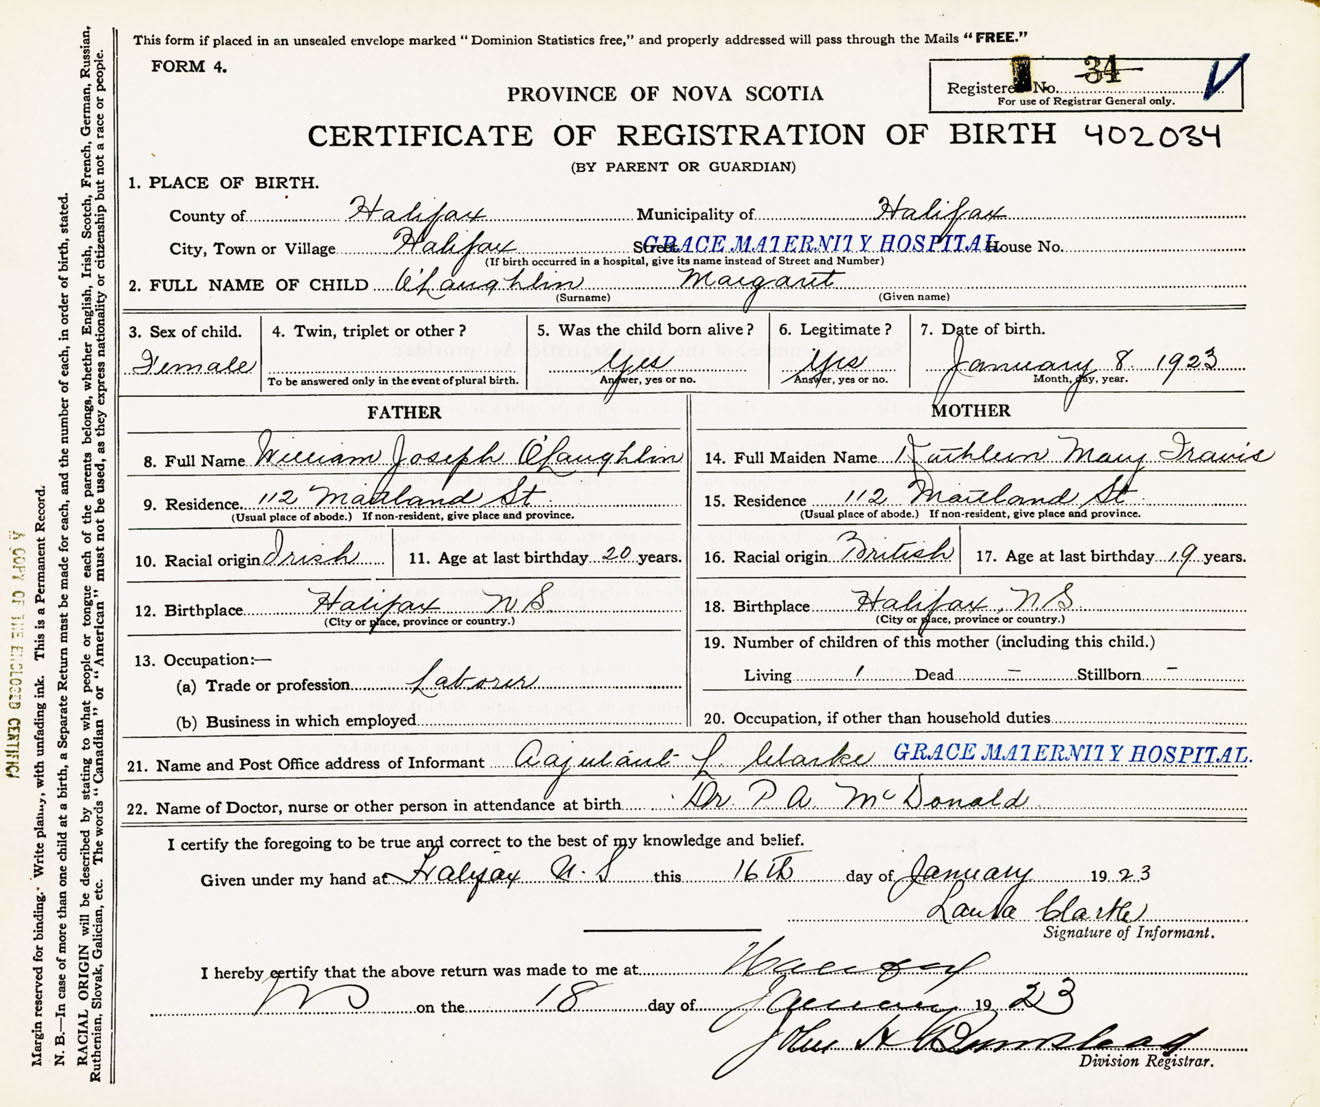 This form if placed in an unsealed envelope marked "Dominion Statistics free," and properly addressed will pass through the Mails "FREE."
FORM 4.
Registered No. 34
For use of Registrar General only.
PROVINCE OF NOVA SCOTIA
CERTIFICATE OF REGISTRATION OF BIRTH 402034
(BY PARENT OR GUARDIAN)
1. PLACE OF BIRTH.
County of Halifax Municipality of Halifax
City, Town or Village Halifax Street GRACE MATERNITY HOSPITAL House No.
(If birth occurred in a hospital, give its name instead of Street and Number)
2. FULL NAME OF CHILD O'Laughlin Margaret
(Surname) (Given name)
3. Sex of child. 4. Twin, triplet or other? 5. Was the child born alive? 6. Legitimate? 7. Date of birth.
Female Yes Yes January 8 1923
To be answered only in the event of plural birth. Answer, yes or no. Answer, yes or no. Month, day, year.
FATHER MOTHER
8. Full Name William Joseph O'Laughlin 14. Full Maiden Name Kathleen Mary Travis
9. Residence 112 Maitland St 15. Residence 112 Maitland St
(Usual place of abode.) If non-resident, give place and province. (Usual place of abode.) If non-resident, give place and province.
10. Racial origin Irish 11. Age at last birthday 20 years. 16. Racial origin British 17. Age at last birthday 19 years.
12. Birthplace Halifax N S 18. Birthplace Halifax, N.S.
(City or place, province or country.) (City or place, province or country.)
13. Occupation:— 19. Number of children of this mother (including this child.)
(a) Trade or profession Laborer Living 1 Dead – Stillborn –
(b) Business in which employed 20. Occupation, if other than household duties
21. Name and Post Office address of Informant Adjutant L. Clarke GRACE MATERNITY HOSPITAL.
22. Name of Doctor, nurse or other person in attendance at birth Dr. P A. McDonald
I certify the foregoing to be true and correct to the best of my knowledge and belief.
Given under my hand at Halifax N.S this 16th day of January 1923
Laura Clarke
Signature of Informant.
I hereby certify that the above return was made to me at Halifax
NS on the 18 day of January 1923
John H
Division Registrar.
Margin reserved for binding. Write plainly, with unfading ink. This is a Permanent Record.
N. B.—In case of more than one child at a birth, a Separate Return must be made for each, and the number of each, in order of birth, stated.
RACIAL ORIGIN will be described by stating to what people or tongue each of the parents belongs, whether English, Irish, Scotch, French, German, Russian,
Ruthenian, Slovak, Galician, etc. The words "Canadian" or "American" must not be used, as they express nationality or citizenship but not a race or people.
A COPY OF THE ENCLOSED CERTIFICA